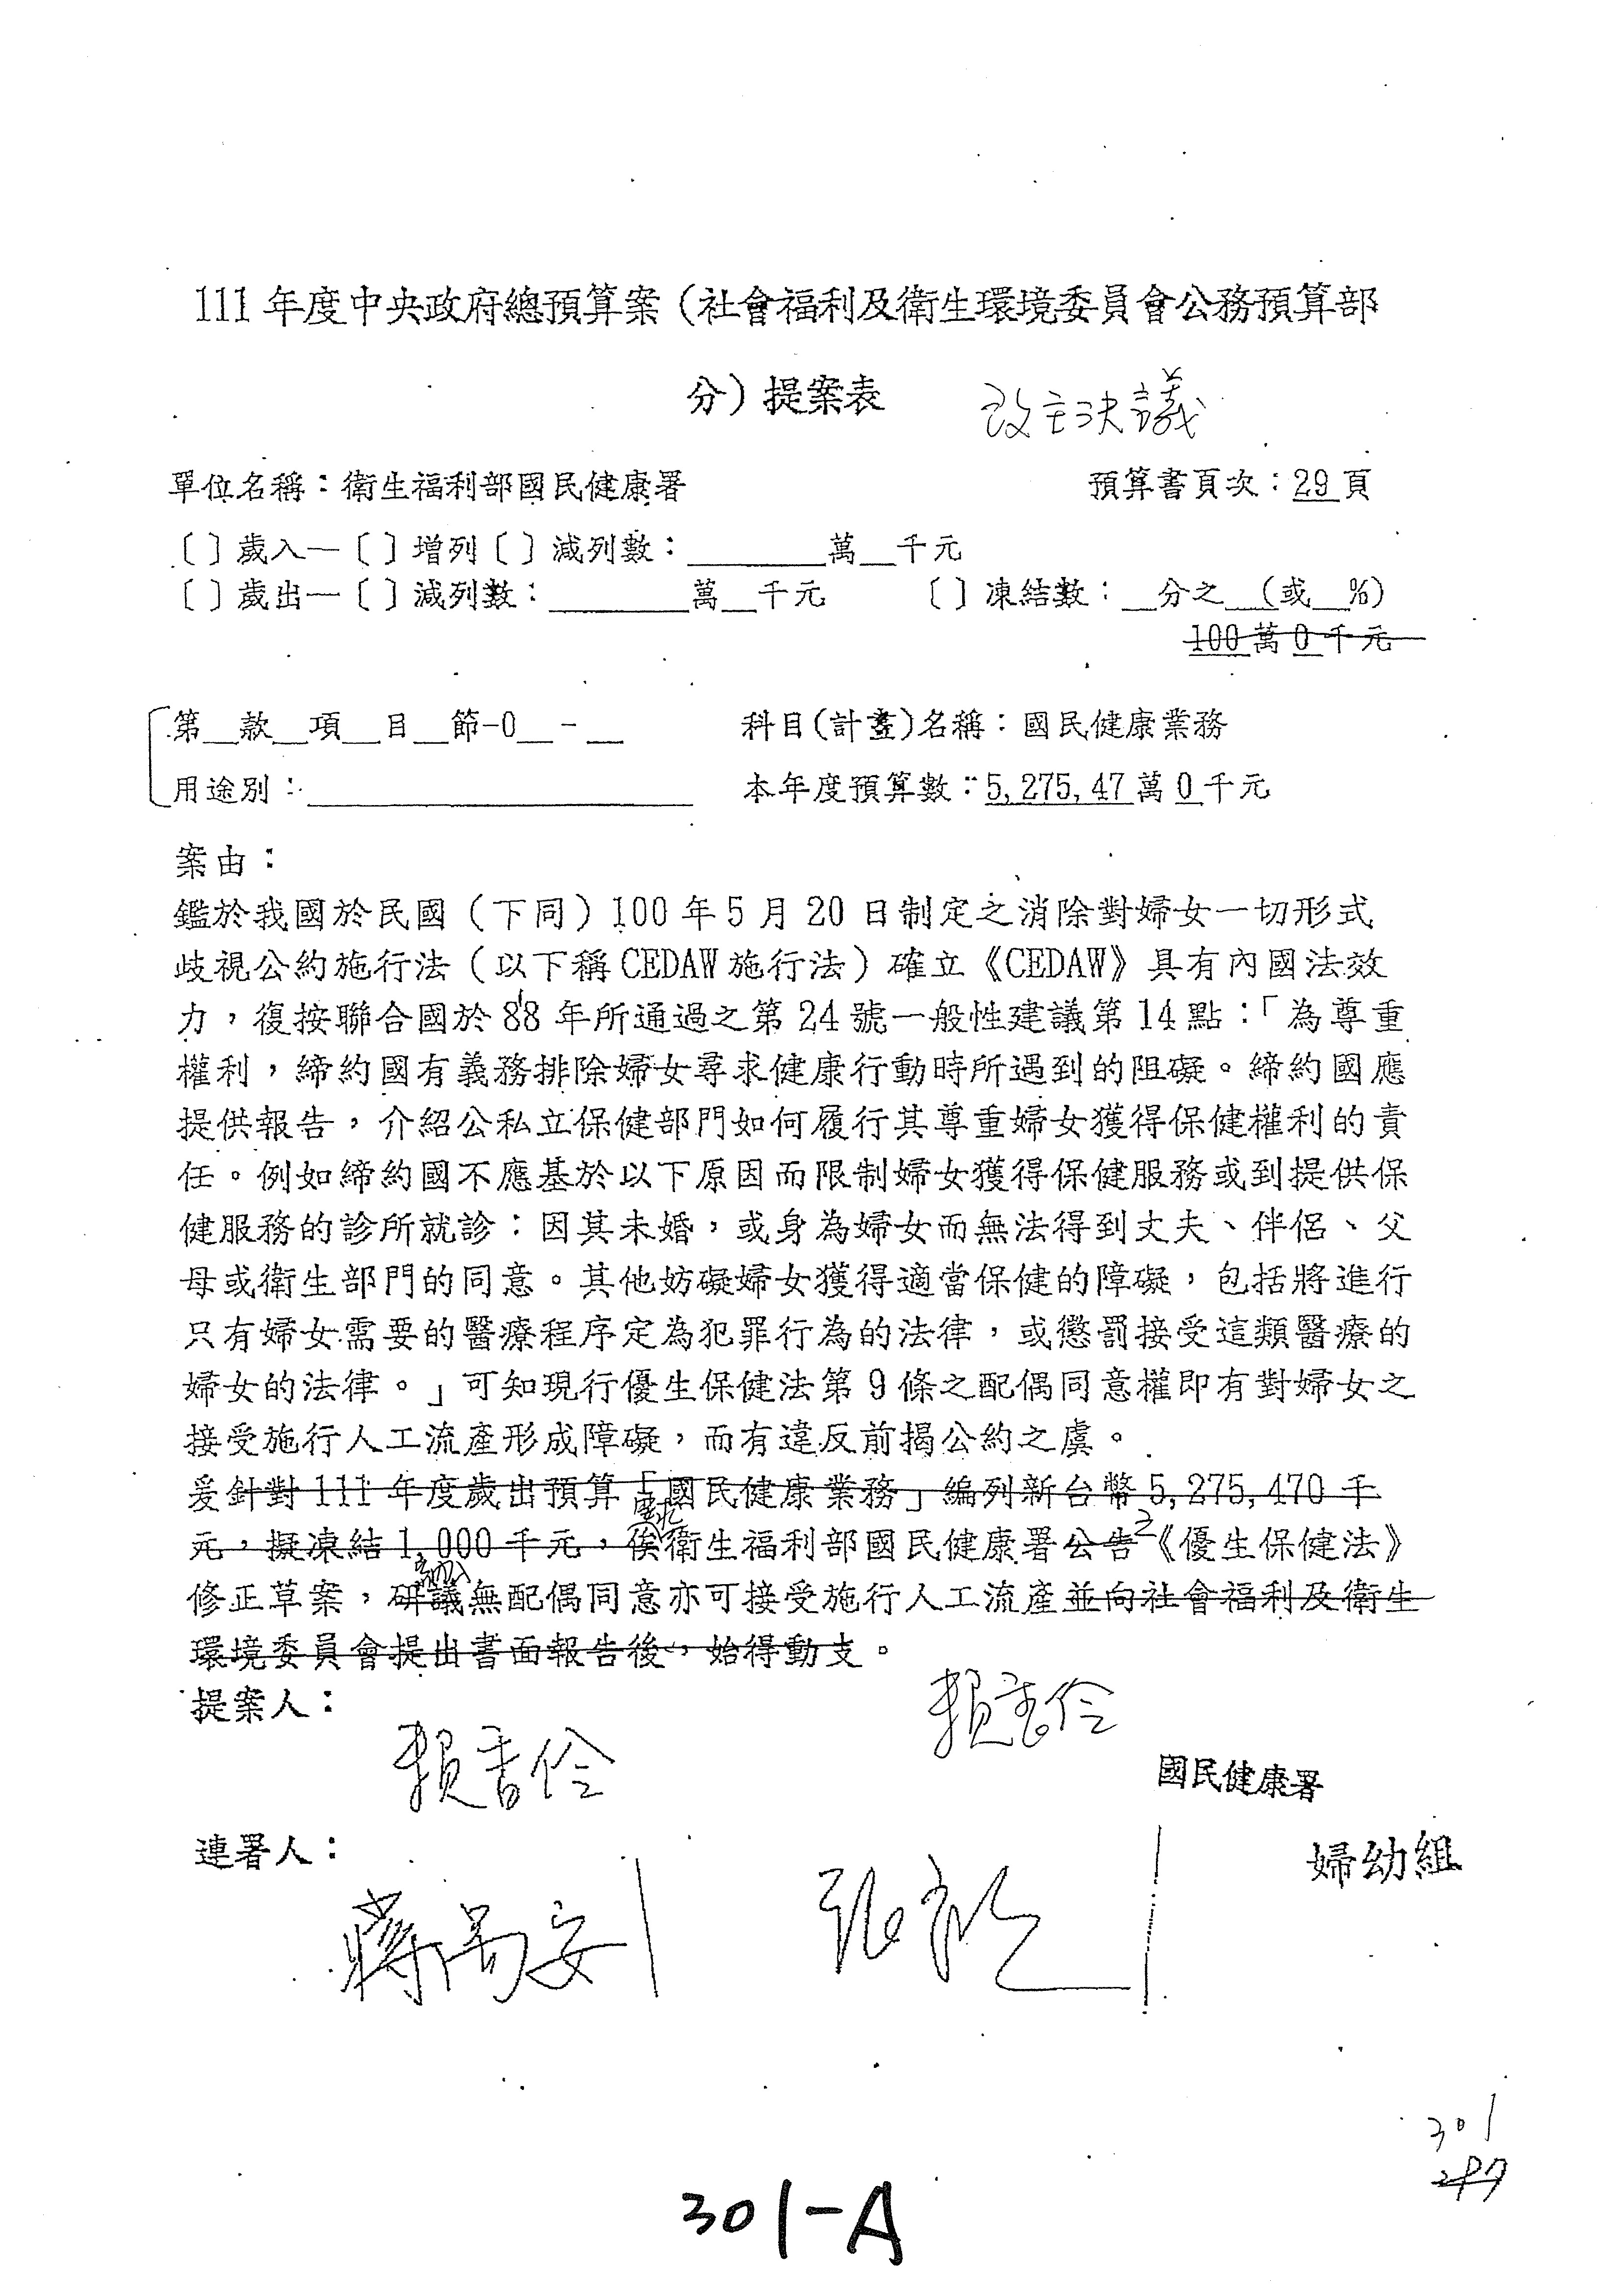 111年度中央政府總預算案(社會福利及衛生環境委員會公務預算部
分)提案表 改主決議
單位名稱：衛生福利部國民健康署 預算書頁次：29頁
〔〕歲入—〔〕增列〔〕減列數：____萬__千元
〔〕歲出—〔〕減列數：____萬__千元 〔〕凍結數：__分之__(或__%)
100萬0千元
第__款__項__目__節-0__-__ 科目(計畫)名稱：國民健康業務
用途別：________ 本年度預算數：5,275,47萬0千元
案由：
鑑於我國於民國（下同）100年5月20日制定之消除對婦女一切形式
歧視公約施行法（以下稱CEDAW施行法）確立《CEDAW》具有內國法效
力，復按聯合國於88年所通過之第24號一般性建議第14點：「為尊重
權利，締約國有義務排除婦女尋求健康行動時所遇到的阻礙。締約國應
提供報告，介紹公私立保健部門如何履行其尊重婦女獲得保健權利的責
任。例如締約國不應基於以下原因而限制婦女獲得保健服務或到提供保
健服務的診所就診：因其未婚，或身為婦女而無法得到丈夫、伴侶、父
母或衛生部門的同意。其他妨礙婦女獲得適當保健的障礙，包括將進行
只有婦女需要的醫療程序定為犯罪行為的法律，或懲罰接受這類醫療的
婦女的法律。」可知現行優生保健法第9條之配偶同意權即有對婦女之
接受施行人工流產形成障礙，而有違反前揭公約之虞。
爰針對111年度歲出預算「國民健康業務」編列新台幣5,275,470千
元，擬凍結1,000千元，俟衛生福利部國民健康署公告之《優生保健法》
修正草案，研議納入無配偶同意亦可接受施行人工流產並向社會福利及衛生
環境委員會提出書面報告後，始得動支。
提案人：
賴香伶 賴香伶
國民健康署
連署人：
婦幼組
蔣萬安
301
297
301-A